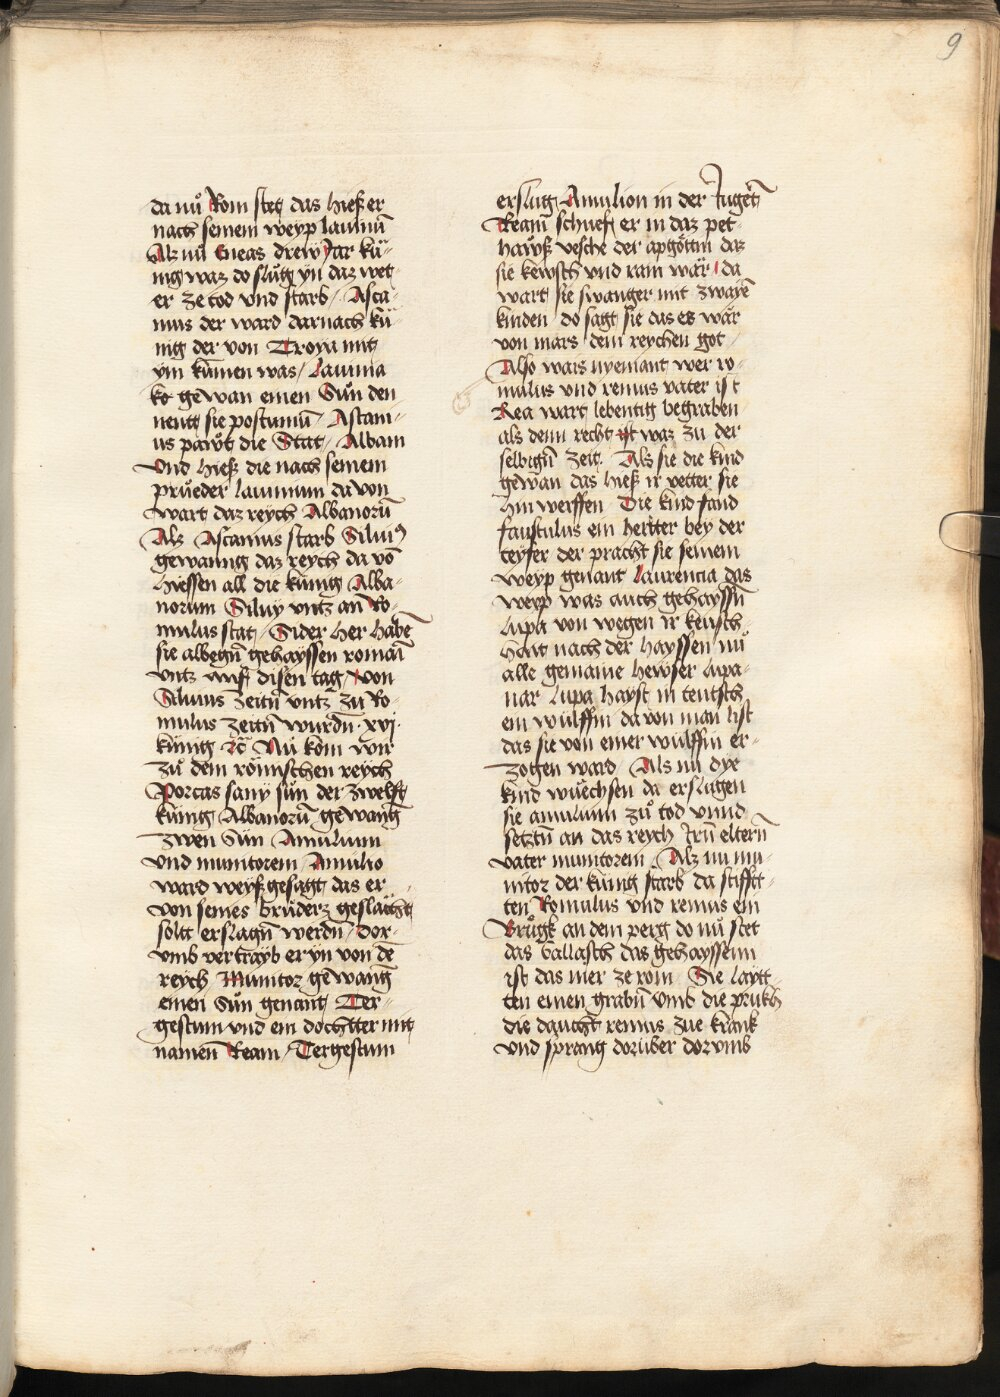 9
da nu Rom stet das hieß er
nach seinem weyp lauinū
Alz nū Eneas drew Jar kü-
nig waz do slůg yn daz wet-
er ze tod vnd starb / Asca-
nius der ward darnach kü-
nig der von Troya mit
ym kumen was / lauinia
ko gewan einen Sůn den
nent sie postumū / Astani-
us pawt die Stat / Albam
vnd hieß die nach seinem
prueder lauinium da von
wart daz reych Albanorū
Alz Ascanius starb Siluiꝰ
gewanng daz reych da vō
hiessen all die künig Alba-
norum Siluy vntz an Ro-
mulus stat / Sider her habē
sie albegn̄ gehayssen romaī
vntz auf disen tag / von
Siluius zeitn̄ vntz zu Ro-
mulus zeitn̄ wurdn̄ · xvj ·
künig ꝛc̄ Nu kom wir
zů dem römischen reych
Porcas sany sun der zwelft
künig Albanorū gewang
zwen Sün Amulium
vnd munitorem Amulio
ward weyß gesagt das er
von seines bruderz geslächt
solt erslagn̄ werdn̄ / dor-
vmb vertrayb er yn von dē
reych Munitor gewang
einen Sůn genant Ter-
gestum vnd ein dochtter mit
namen Ream / Tergestum
erslug Amulion in der Jugētˉ
Ream schuef er in daz pet-
hawß vesche der apgöttin daz
sie kewsch vnd rain wär / da
wart sie swanger mit zwayē
kinden do sagt sie das es wär
von mars dem reychen got
Also wais nyemant wer ro-
mulus vnd remus vater ist
Rea wart lebentig begraben
als denn recht waz zu der
selbign̄ zeit. Als sie die kind
gewan das hieß ir vetter sie
hin werffen Die kind fand
faustulus ein hertter bey der
teyfer der pracht sie seinem
weyp genant laurencia das
weyp was auch gehayssn̄
lupa von wegen ir keusch
hait nach der hayssen nū
alle gemaine hewser lupa-
nar lupa hayst in teutsch
ein wulffin da von man list
das sie von einer wulffin er-
zogen ward Als nu dye
kind wuechsen da erslugen
sie amulium zů tod vnnd
setztn̄ an das reych Jrn̄ eltern̄
vater munitorem. Alz nu mu-
nitor der künig starb da stifft-
ten Romulus vnd remus ein
Brugk an dem perg do nů stet
das ballasch das gehayssenn
ist das mer ze rom Sie laytt
ten einen grabn̄ vmb die prukh
die daucht remus zue krank
vnd sprang dorüber dorvmb